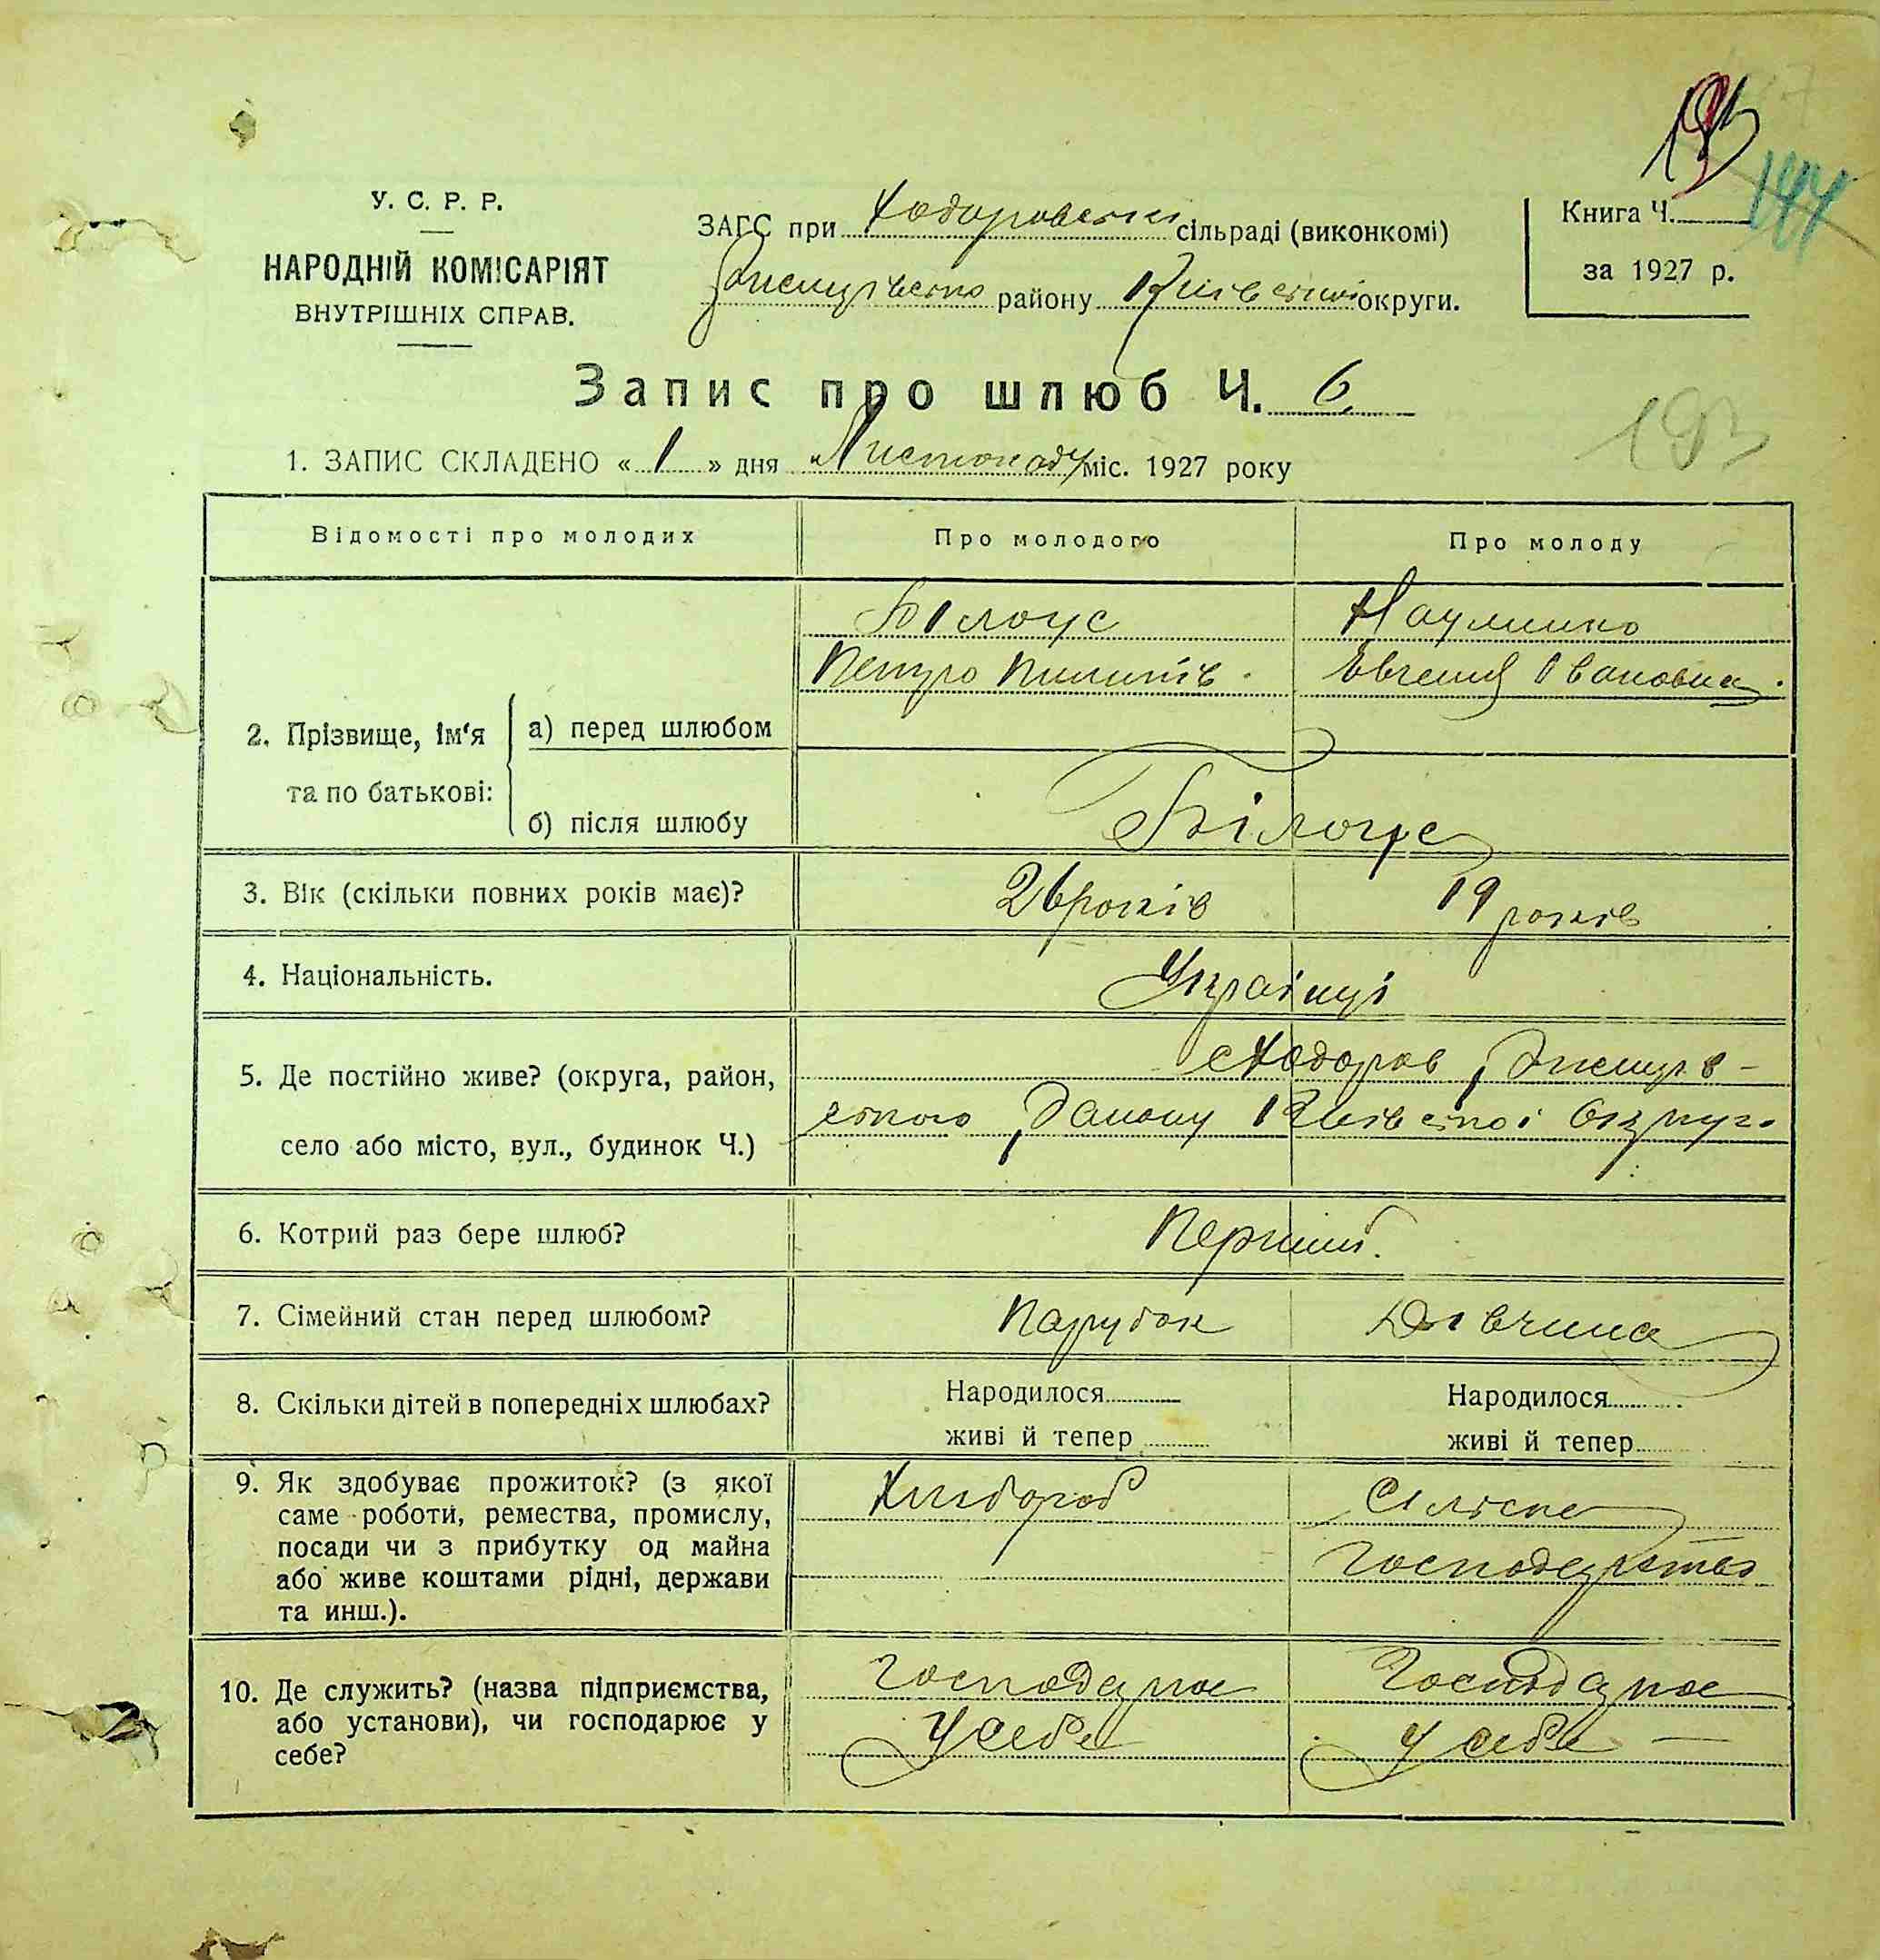 193
144
У. С. Р. Р.
НАРОДНІЙ КОМІСАРІЯТ
ВНУТРІШНІХ СПРАВ.
ЗАГС при Ходоровскій сільраді (виконкомі)
Ржищівсько району Київської округи.
Книга Ч.
за 1927 р.
Запис про шлюб Ч. 6
193
1. ЗАПИС СКЛАДЕНО « 1 » дня „Листопаду міс. 1927 року
Відомості про молодих
Про молодого
Про молоду
2. Прізвище, ім'я та по батькові:
а) перед шлюбом
Білоус
Петро Пилипів.
Науменко
Евгения Івановна.
б) після шлюбу
Білоус
3. Вік (скільки повних років має)?
26 років
19 років
4. Національність.
Українці
5. Де постійно живе? (округа, район,
село або місто, вул., будинок Ч.)
с Ходоров, Ржищів-
ського Району Київської Округи
6. Котрий раз бере шлюб?
Перший.
7. Сімейний стан перед шлюбом?
Парубок
Дівчина
8. Скільки дітей в попередніх шлюбах?
Народилося
живі й тепер
Народилося
живі й тепер
9. Як здобуває прожиток? (з якої
саме роботи, ремества, промислу,
посади чи з прибутку од майна
або живе коштами рідні, держави
та инш.).
Хлібороб
Сільске
Господарство
10. Де служить? (назва підприємства,
або установи), чи господарює у
себе?
Господарює
У себе
Господарює
у себе —